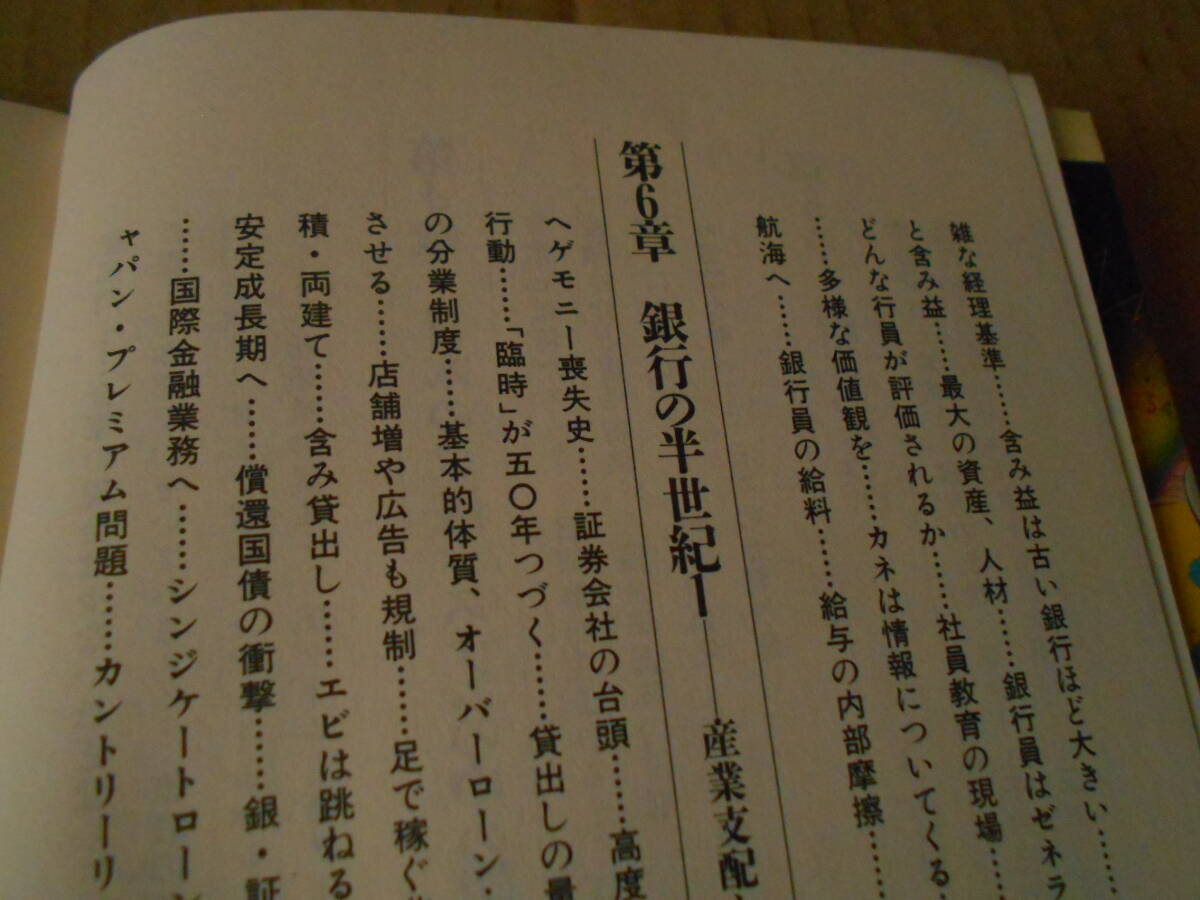 雑な経理基準……含み益は古い銀行ほど大きい……
と含み益……最大の資産、人材……銀行員はゼネラ
どんな行員が評価されるか……社員教育の現場……
……多様な価値観を……カネは情報についてくる
航海へ……銀行員の給料……給与の内部摩擦……
第6章 銀行の半世紀ー――産業支配
ヘゲモニー喪失史……証券会社の台頭……高度
行動……「臨時」が五〇年つづく……貸出しの量
の分業制度……基本的体質、オーバーローン
させる……店舗増や広告も規制……足で稼ぐ
積・両建て……含み貸出し……エビは跳ねる
安定成長期へ……償還国債の衝撃……銀・証
……国際金融業務へ……シンジケートローン
ャパン・プレミアム問題……カントリーリ